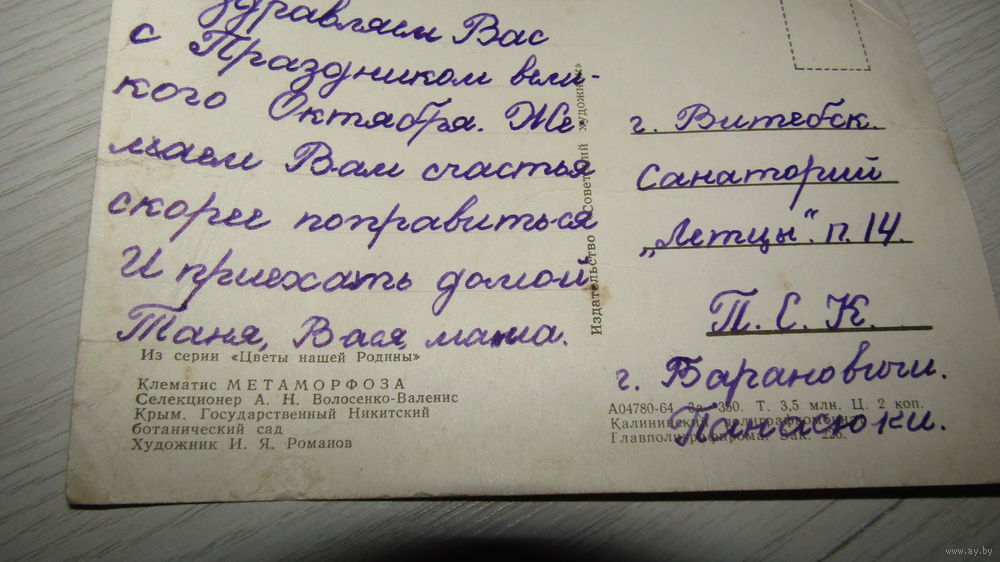 здравляем Вас
с Праздником вели-
кого Октября. Же-
лаем Вам счастья
скорее поправиться
И приехать домой,
Таня, Вася, мама.
Из серии «Цветы нашей Родины»
Клематис МЕТАМОРФОЗА
Селекционер А. Н. Волосенко-Валенис
Крым. Государственный Никитский
ботанический сад
Художник И. Я. Романов
Издательство «Советский художник»
г. Витебск.
санаторий
„Летцы". п. 14.
П. С. К.
г. Барановичи.
Панасюки.
А04780-64. За. 350. Т. 3,5 млн. Ц. 2 коп.
Калининский полиграфкомбинат
Главполиграфпрома. Зак. 236.
www.ay.by